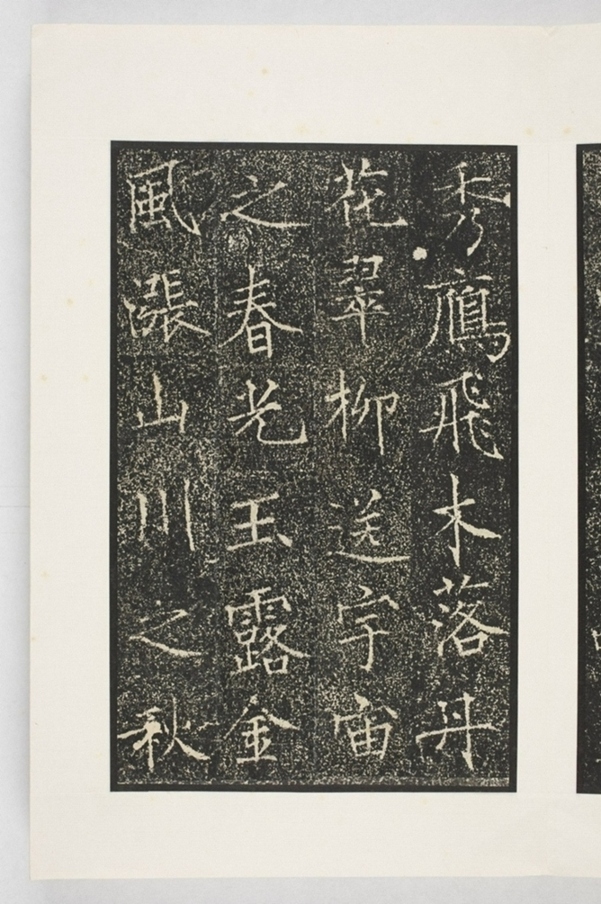 秀鴈飛木落丹
花翠柳送宇宙
之春光玉露金
風漲山川之秋